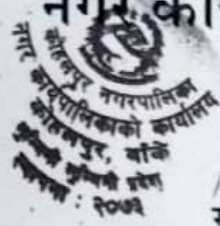 नगर का
कोहलपुर नगरपालिका
नगर कार्यपालिकाको कार्यालय
कोहलपुर, बाँके
लुम्बिनी प्रदेश
स्थापना : २०७३